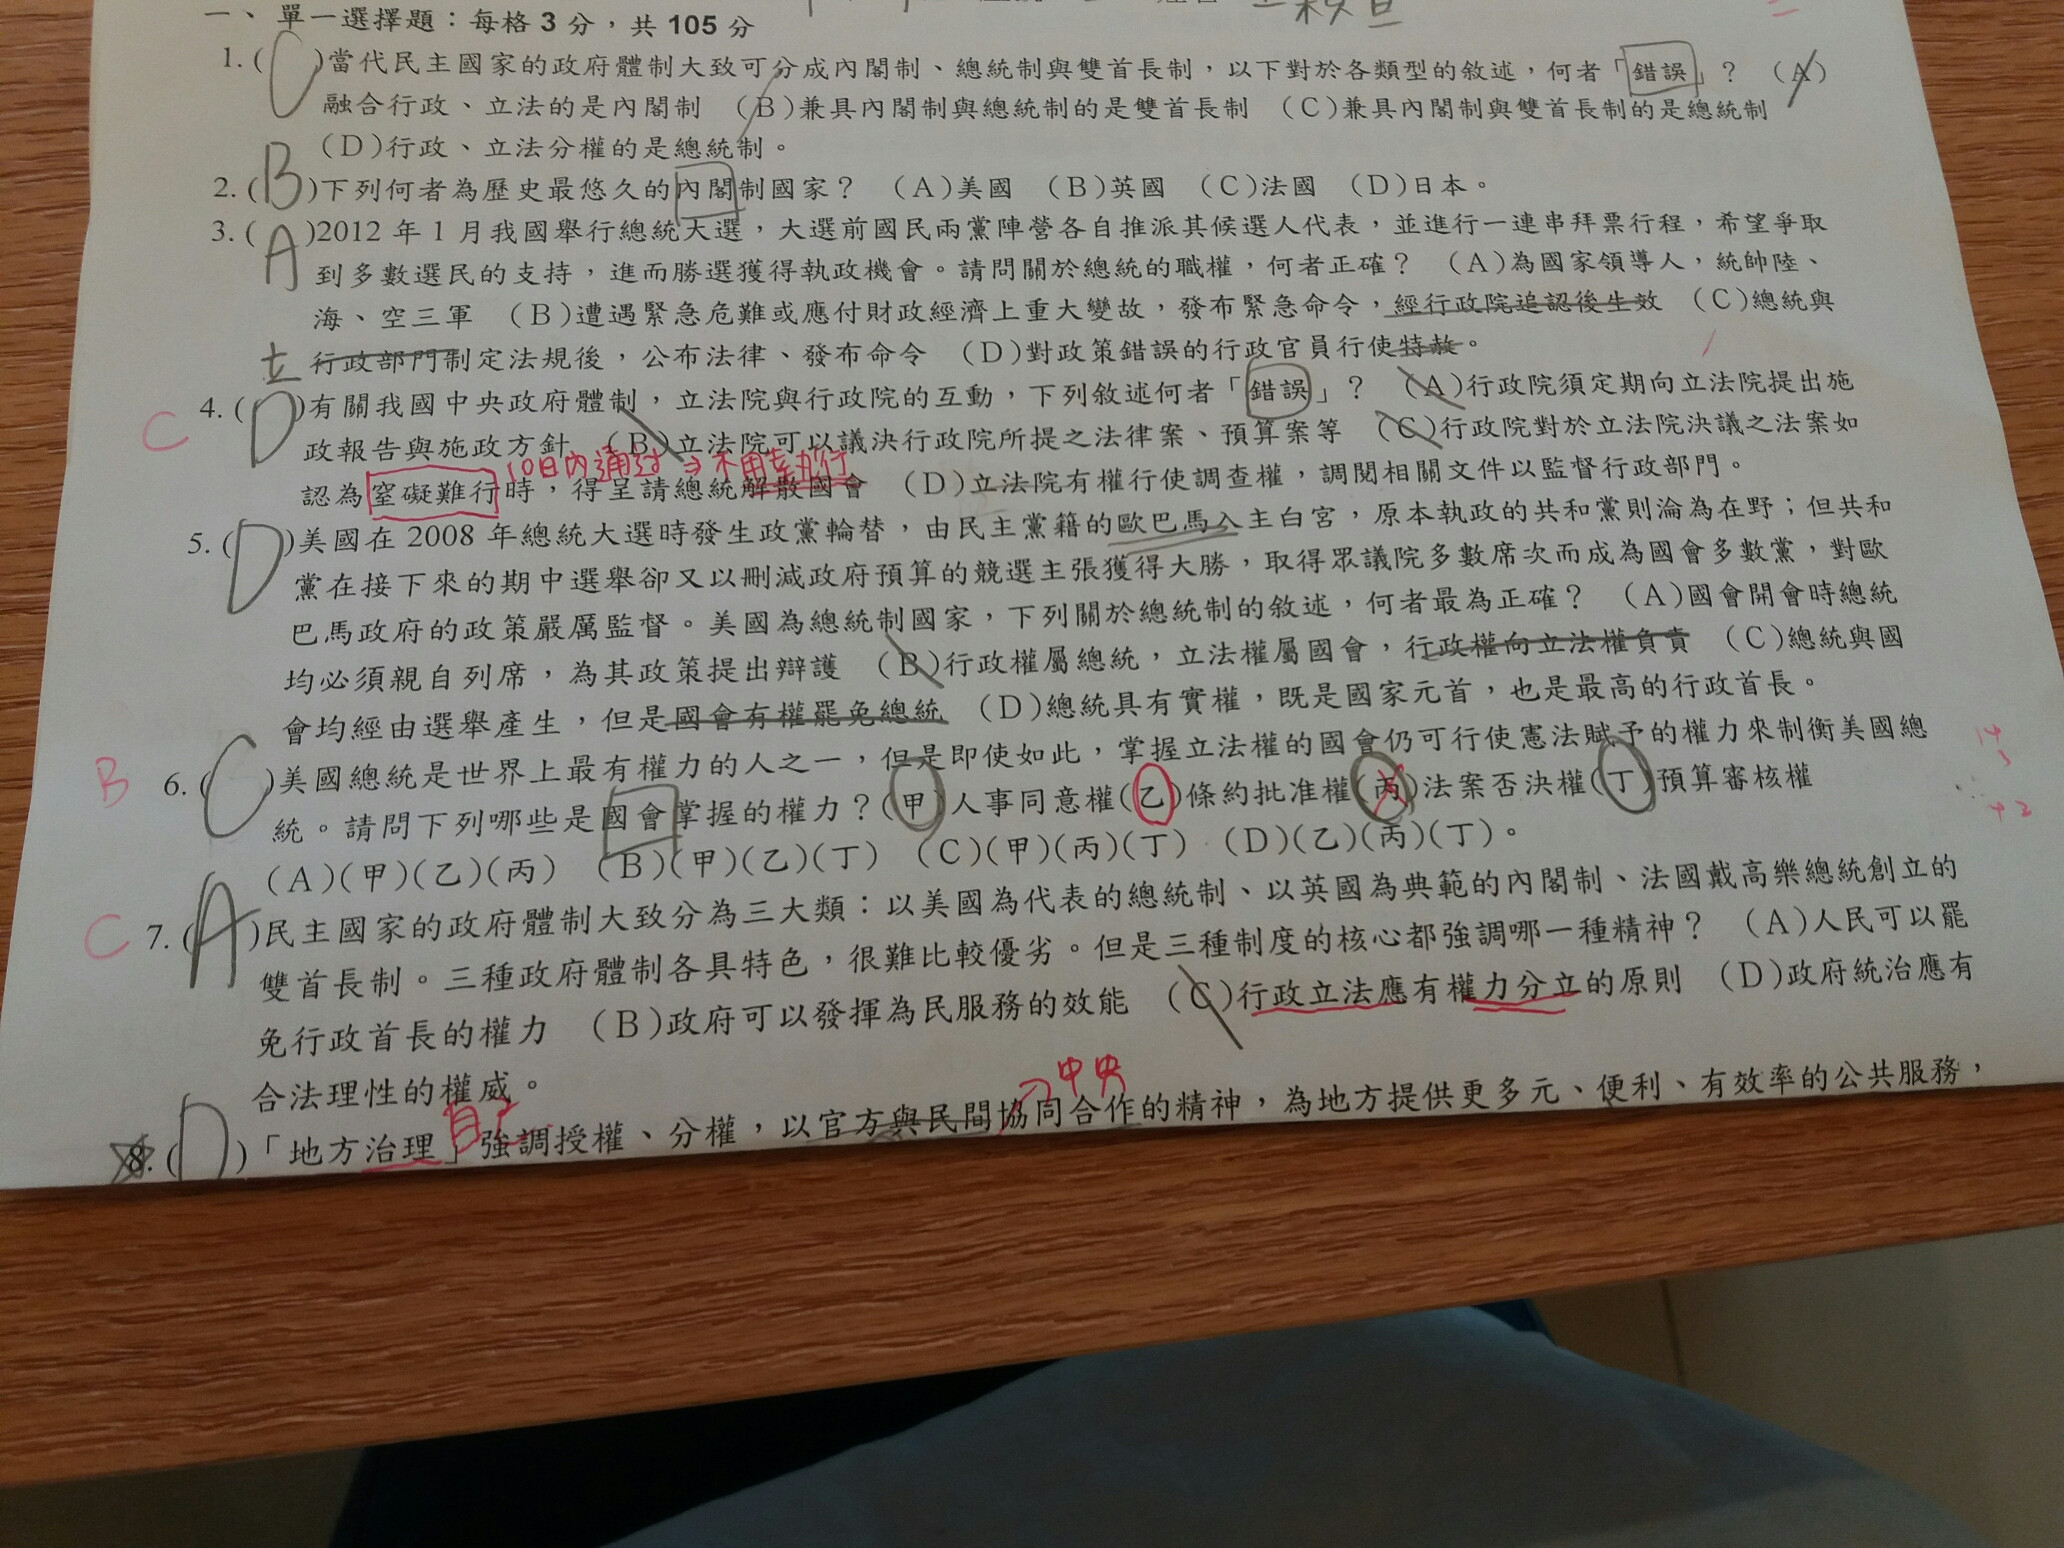 一、單一選擇題：每格 3 分，共 105 分
1. ( C )當代民主國家的政府體制大致可分成內閣制、總統制與雙首長制，以下對於各類型的敘述，何者「錯誤」？ (A)
融合行政、立法的是內閣制 (B)兼具內閣制與總統制的是雙首長制 (C)兼具內閣制與雙首長制的是總統制
(D)行政、立法分權的是總統制。
2. ( B )下列何者為歷史最悠久的內閣制國家？ (A)美國 (B)英國 (C)法國 (D)日本。
3. ( A )2012 年 1 月我國舉行總統大選，大選前國民兩黨陣營各自推派其候選人代表，並進行一連串拜票行程，希望爭取
到多數選民的支持，進而勝選獲得執政機會。請問關於總統的職權，何者正確？ (A)為國家領導人，統帥陸、
海、空三軍 (B)遭遇緊急危難或應付財政經濟上重大變故，發布緊急命令，經行政院追認後生效 (C)總統與
立 行政部門制定法規後，公布法律、發布命令 (D)對政策錯誤的行政官員行使特赦。
C 4. ( D )有關我國中央政府體制，立法院與行政院的互動，下列敘述何者「錯誤」？ (A)行政院須定期向立法院提出施
政報告與施政方針 (B)立法院可以議決行政院所提之法律案、預算案等 (C)行政院對於立法院決議之法案如
10日內通過⇒不用執行
認為窒礙難行時，得呈請總統解散國會 (D)立法院有權行使調查權，調閱相關文件以監督行政部門。
5. ( D )美國在 2008 年總統大選時發生政黨輪替，由民主黨籍的歐巴馬入主白宮，原本執政的共和黨則淪為在野；但共和
黨在接下來的期中選舉卻又以刪減政府預算的競選主張獲得大勝，取得眾議院多數席次而成為國會多數黨，對歐
巴馬政府的政策嚴厲監督。美國為總統制國家，下列關於總統制的敘述，何者最為正確？ (A)國會開會時總統
均必須親自列席，為其政策提出辯護 (B)行政權屬總統，立法權屬國會，行政權向立法權負責 (C)總統與國
會均經由選舉產生，但是國會有權罷免總統 (D)總統具有實權，既是國家元首，也是最高的行政首長。
B 6. ( C )美國總統是世界上最有權力的人之一，但是即使如此，掌握立法權的國會仍可行使憲法賦予的權力來制衡美國總
統。請問下列哪些是國會掌握的權力？(甲)人事同意權(乙)條約批准權(丙)法案否決權(丁)預算審核權
(A)(甲)(乙)(丙) (B)(甲)(乙)(丁) (C)(甲)(丙)(丁) (D)(乙)(丙)(丁)。
C 7. ( A )民主國家的政府體制大致分為三大類：以美國為代表的總統制、以英國為典範的內閣制、法國戴高樂總統創立的
雙首長制。三種政府體制各具特色，很難比較優劣。但是三種制度的核心都強調哪一種精神？ (A)人民可以罷
免行政首長的權力 (B)政府可以發揮為民服務的效能 (C)行政立法應有權力分立的原則 (D)政府統治應有
合法理性的權威。
自己 中央
8. ( D )「地方治理」強調授權、分權，以官方與民間協同合作的精神，為地方提供更多元、便利、有效率的公共服務，